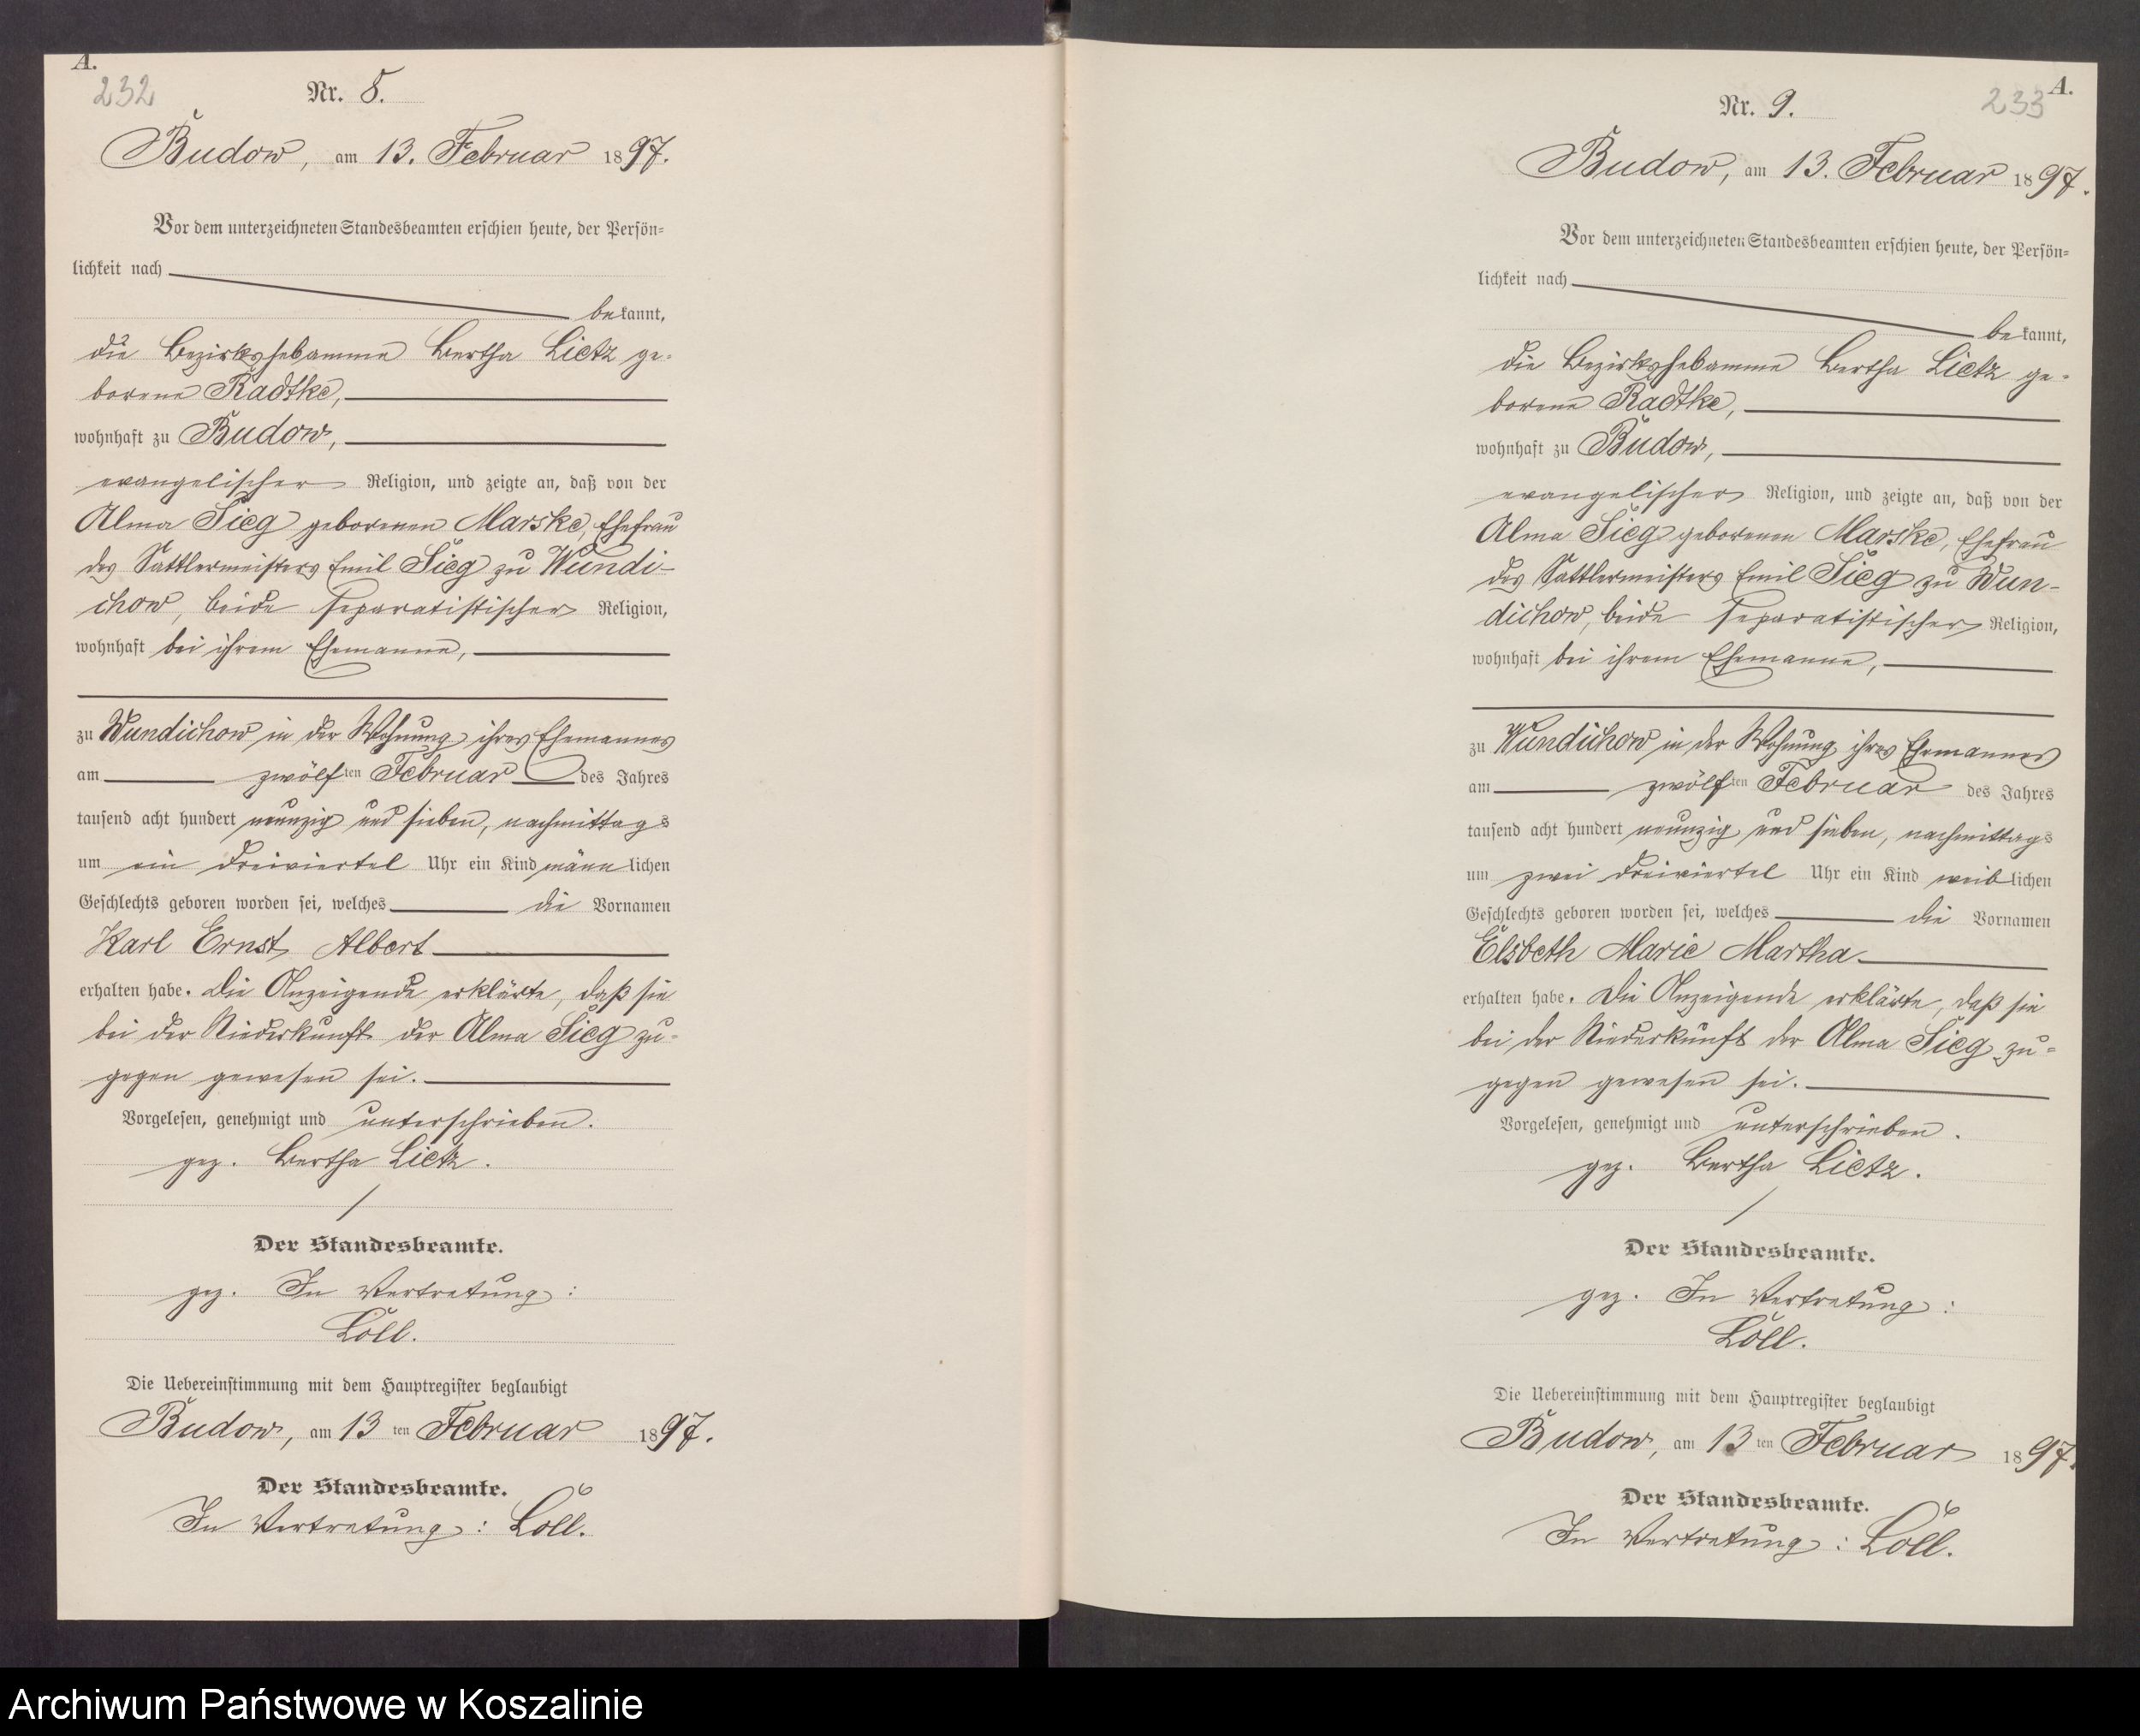 A.
232
Nr. 8.
Budow, am 13. Februar 1897.
Vor dem unterzeichneten Standesbeamten erschien heute, der Persön=
lichkeit nach
bekannt,
die Bezirkshebamme Bertha Lietz ge-
borene Radtke,
wohnhaft zu Budow,
evangelischer Religion, und zeigte an, daß von der
Alma Sieg geborenen Marske, Ehefrau
des Sattlermeisters Emil Sieg zu Wundi-
chow, beide separatistischer Religion,
wohnhaft bei ihrem Ehemanne,
zu Wundichow in der Wohnung ihres Ehemannes
am zwölften Februar des Jahres
tausend acht hundert neunzig und sieben, nachmittags
um ein dreiviertel Uhr ein Kind männlichen
Geschlechts geboren worden sei, welches die Vornamen
Karl Ernst Albert
erhalten habe. Die Anzeigende erklärte, daß sie
bei der Niederkunft der Alma Sieg zu-
gegen gewesen sei.
Vorgelesen, genehmigt und unterschrieben.
gez. Bertha Lietz.
Der Standesbeamte.
gez. In Vertretung:
Löll.
Die Uebereinstimmung mit dem Hauptregister beglaubigt
Budow, am 13ten Februar 1897.
Der Standesbeamte.
In Vertretung: Löll.
A.
233
Nr. 9.
Budow, am 13. Februar 1897.
Vor dem unterzeichneten Standesbeamten erschien heute, der Persön=
lichkeit nach
bekannt,
die Bezirkshebamme Bertha Lietz ge-
borene Radtke,
wohnhaft zu Budow,
evangelischer Religion, und zeigte an, daß von der
Alma Sieg geborenen Marske, Ehefrau
des Sattlermeisters Emil Sieg zu Wun-
dichow, beide separatistischer Religion,
wohnhaft bei ihrem Ehemanne,
zu Wundichow in der Wohnung ihres Ehemannes
am zwölften Februar des Jahres
tausend acht hundert neunzig und sieben, nachmittags
um zwei dreiviertel Uhr ein Kind weiblichen
Geschlechts geboren worden sei, welches die Vornamen
Elsbeth Marie Martha
erhalten habe. Die Anzeigende erklärte, daß sie
bei der Niederkunft der Alma Sieg zu-
gegen gewesen sei.
Vorgelesen, genehmigt und unterschrieben.
gez. Bertha Lietz.
Der Standesbeamte.
gez. In Vertretung:
Löll.
Die Uebereinstimmung mit dem Hauptregister beglaubigt
Budow, am 13ten Februar 1897.
Der Standesbeamte.
In Vertretung: Löll.
Archiwum Państwowe w Koszalinie